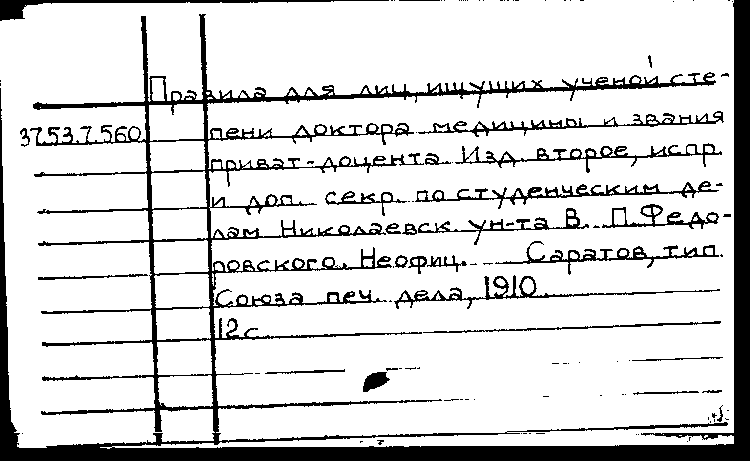 Правила для лиц, ищущих ученой сте-
37.53.7.560. пени доктора медицины и звания
приват-доцента. Изд. второе, испр.
и доп. секр. по студенческим де-
лам Николаевск. ун-та В. П. Федо-
ровского. Неофиц. Саратов, тип.
Союза печ. дела, 1910.
12 с.